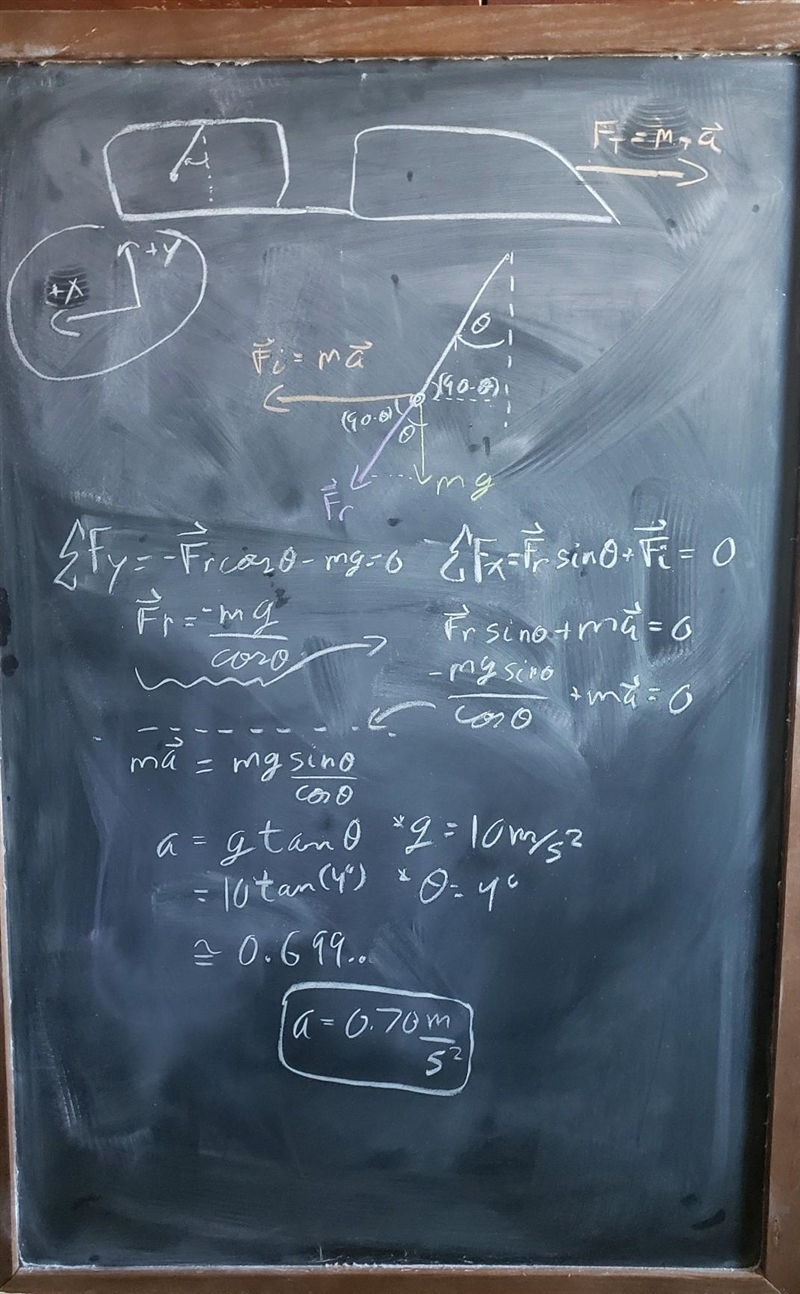 F⃗_T = m_T a⃗
+y
+x
θ
F⃗i = ma⃗
(90-θ)
(90-θ)
θ
mg
F⃗r
ΣFy = -F⃗r cosθ - mg = 0
ΣFx = F⃗r sinθ + F⃗i = 0
F⃗r = -mg/cosθ
F⃗r sinθ + ma⃗ = 0
-mg sinθ/cosθ + ma⃗ = 0
ma⃗ = mg sinθ/cosθ
a = g tanθ *g = 10m/s²
= 10 tan(4°) * θ = 4°
≅ 0.699..
a = 0.70 m/s²